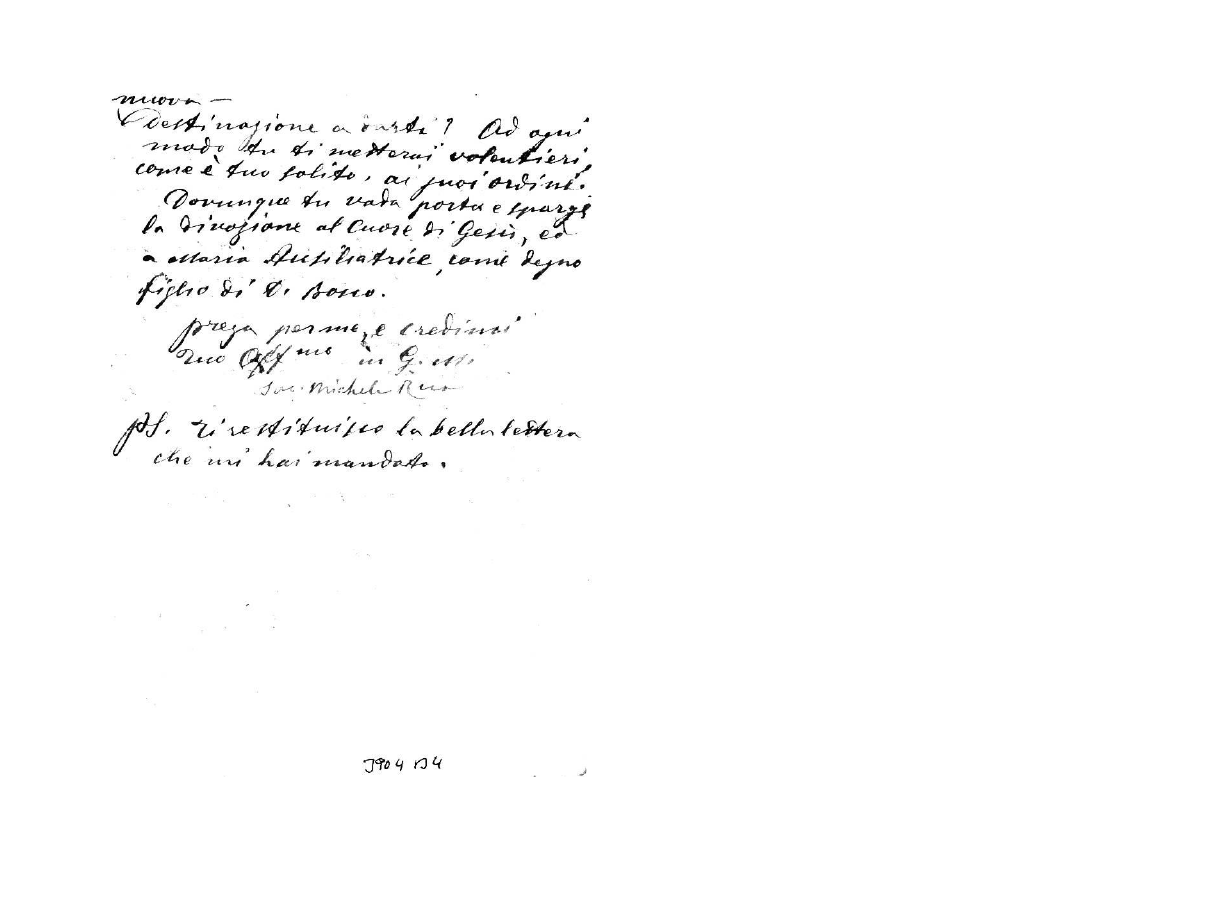 nuova –
Destinazione a darti? Ad ogni
modo tu ti metterai volentieri,
come è tuo solito, ai suoi ordini.
Dovunque tu vada porta e spargi
la divozione al Cuore di Gesù, ed
a Maria Ausiliatrice, come degno
figlio di D. Bosco.
Prega per me, e credimi
Tuo Aff mo in G.
Sac. Michele Rua
PS. Ti restituisco la bella lettera
che mi hai mandato.